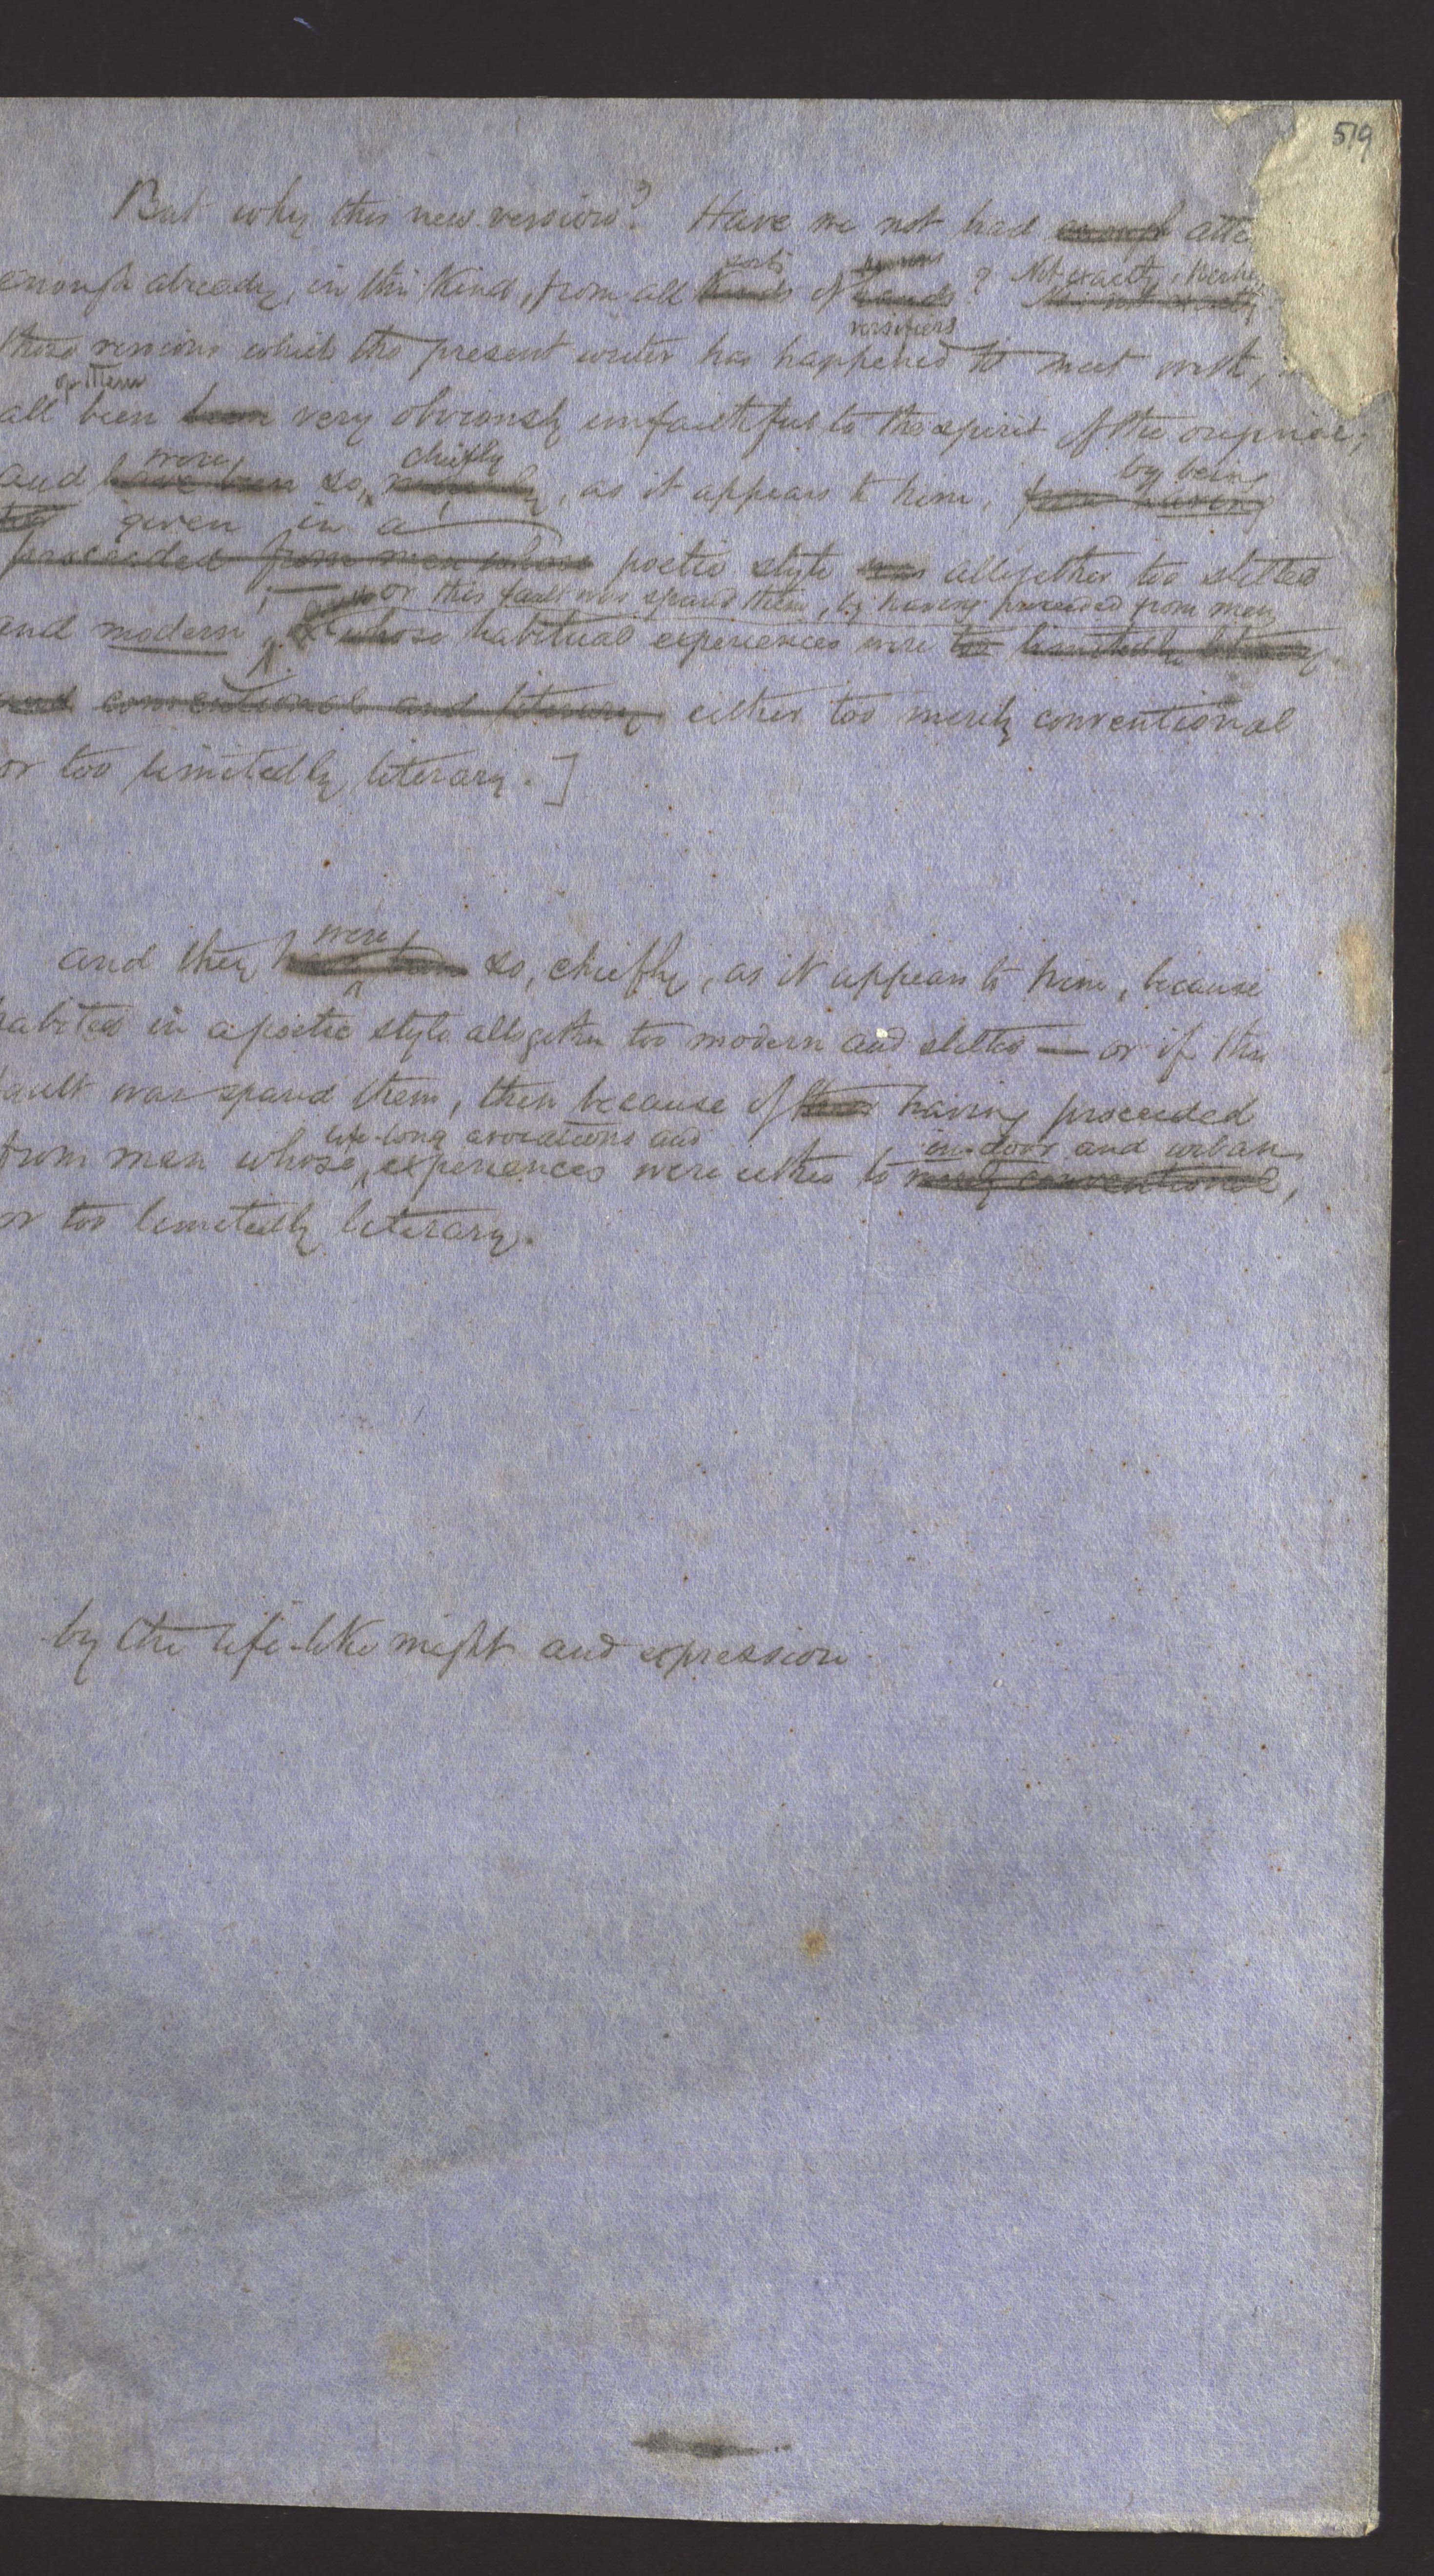 519
But why this new version? Have we not had enough atte
sorts persons Not exactly, 
enough already, in this kind, from all kinds of hands?
versifiers
those versions which the present writer has happened to meet with,
of them
all been been very obviously unfaithful to the spirit of the original;
were chiefly by being
and have been so, mainly, as it appears to him, from having
given in a
proceeded from men whose poetic style was altogether too stilted
or this fault was spared them, by having proceeded from men
and modern; whose habitual experiences were too limitedly literary
and conventional and literary, either too merely conventional
or too limitedly literary.]
were
and they have been so, chiefly, as it appears to him, because
habited in a poetic style altogether too modern and stilted — or if this
fault was spared them, then because of their having proceeded
life-long avocations and in-door and urban
from men whose experiences were either to merely conventional,
or too limitedly literary.
by the life-like might and expression